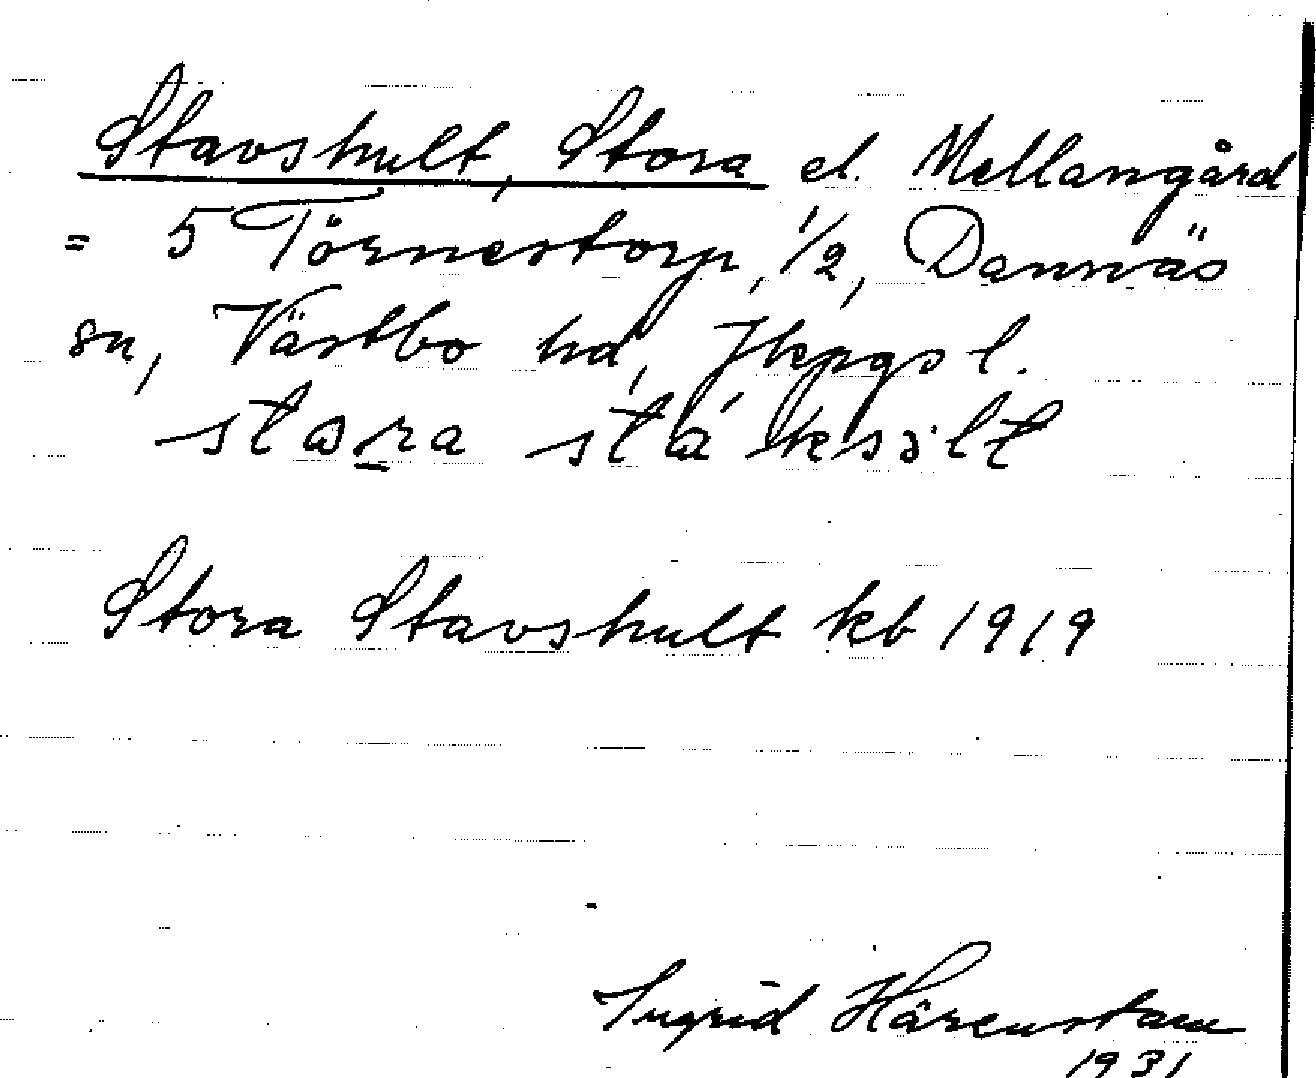 Stavshult, Stora el. Mellangård
= 5 Törnestorp, 1/2, Dannäs
sn, Västbo hd, Jkpgs l.
stora stáksilt
Stora Stavshult kb 1919
Ingrid Härenstam
1931